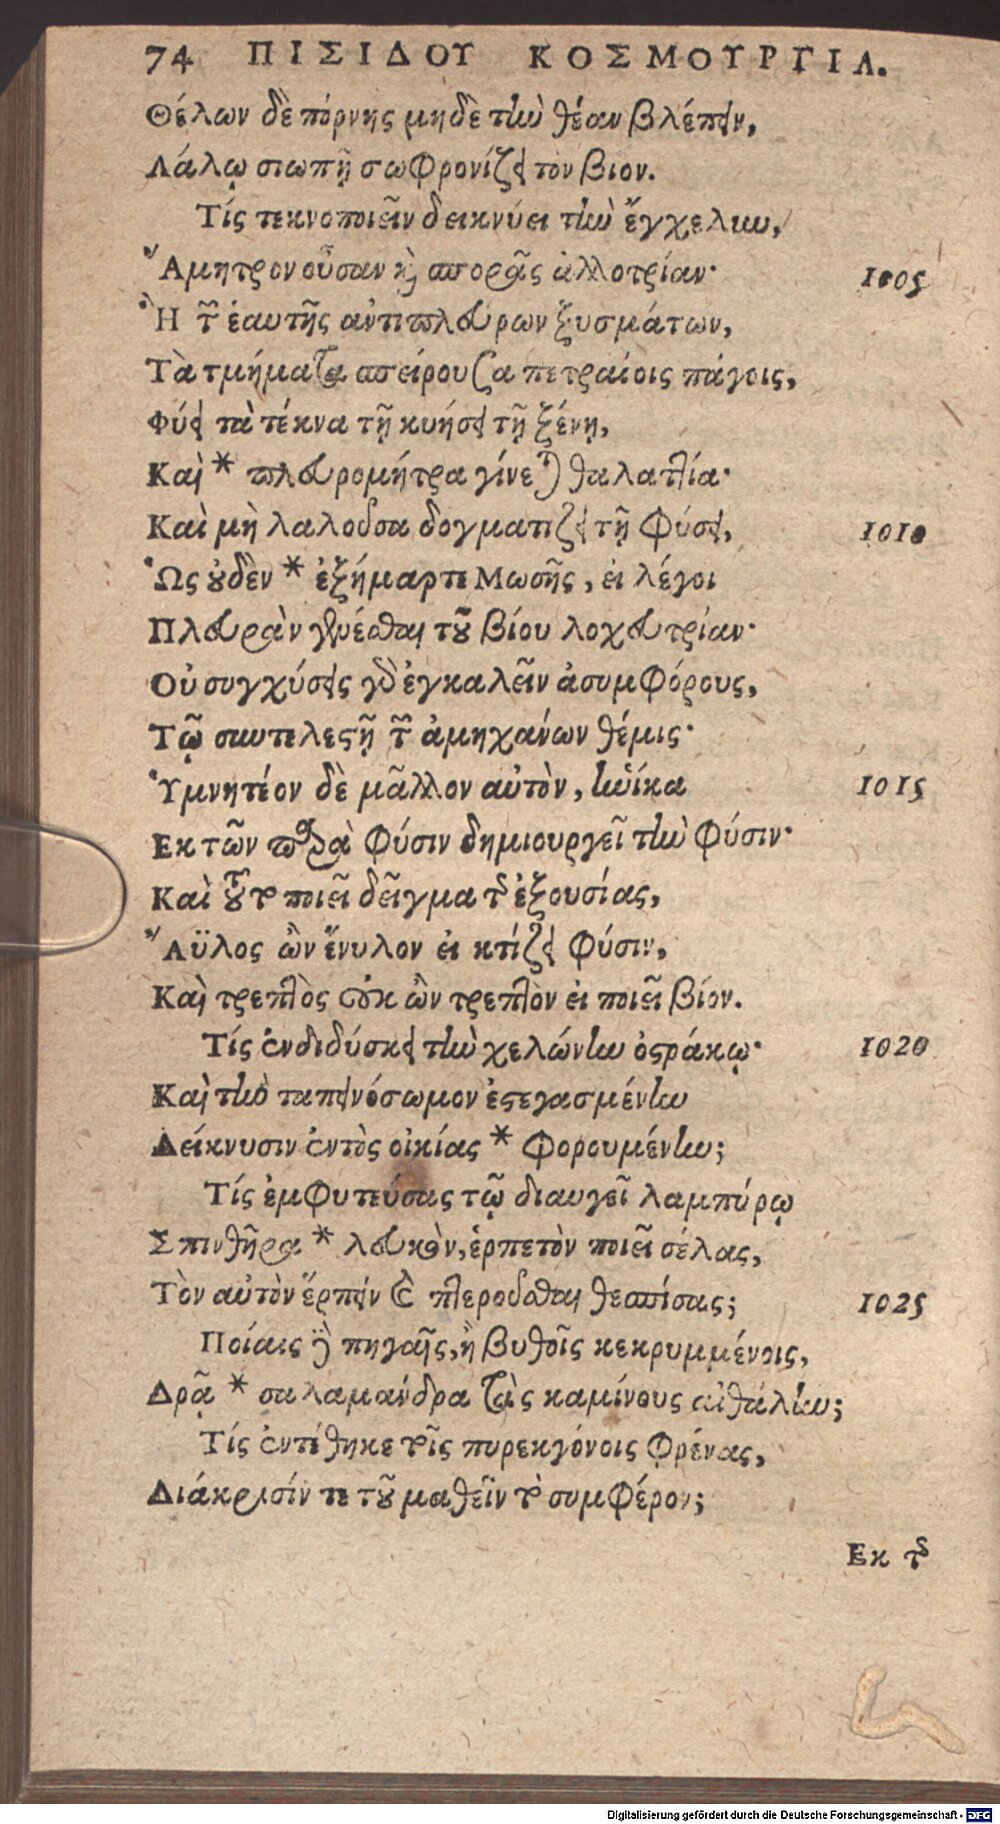 74 ΠΙΣΙΔΟΥ ΚΟΣΜΟΥΡΓΙΑ.
Θέλων δὲ πόρνης μηδὲ τὴν θέαν βλέπειν,
Λάλῳ σιωπῇ σωφρονίζει τὸν βιον.
Τίς τεκνοποιεῖν δεικνύει τὴν ἔγχελιω,
Ἄμητρον οὖσαν καὶ σπορᾶς ἀλλοτρίαν·
1005
Ἢ τῶν ἑαυτῆς ἀντιπλεύρων ξυσμάτων,
Τὰ τμήματα σπείρουσα πετραίοις πάγοις,
Φύει τὰ τέκνα τῇ κυήσει τῇ ξένῃ,
Καὶ * πλευρομήτρα γίνεται θαλαττία·
Καὶ μὴ λαλοῦσα δογματιζει τῇ φύσει,
1010
Ὡς οὐδὲν * ἐξήμαρτε Μωσῆς, εἰ λέγοι
Πλευρὰν γενέσθαι τοῦ βίου λοχεύτριαν·
Οὐ συγχύσεις γὰρ ἐγκαλεῖν ἀσυμφόρους,
Τῷ συντελεστῇ τῶν ἀμηχάνων θέμις·
Ὑμνητέον δὲ μᾶλλον αὐτὸν, ἡνίκα
1015
Εκ τῶν παρὰ φύσιν δημιουργεῖ τὴν φύσιν·
Καὶ τοῦτο ποιεῖ δεῖγμα τῆς ἐξουσίας,
Ἄϋλος ὢν ἔνυλον εἰ κτίζει φύσιν,
Καὶ τρεπτὸς οὐκ ὢν τρεπτὸν εἰ ποιεῖ βίον.
Τίς ἐνδιδύσκει τὴν χελώνην ὀστράκῳ·
1020
Καὶ τὴν ταπεινόσωμον ἐστεγασμένην
Δείκνυσιν ἐντὸς οἰκίας * φορουμένην;
Τίς ἐμφυτεύσας τῷ διαυγεῖ λαμπύρῳ
Σπινθῆρα * λευκὸν, ἑρπετὸν ποιεῖ σέλας,
Τὸν αὐτὸν ἕρπειν καὶ πτεροῦσθαι θεσπίσας;
1025
Ποίαις δὲ πηγαῖς, ἢ βυθοῖς κεκρυμμένοις,
Δρᾷ * σαλαμάνδρα τὰς καμίνους αἰθάλην;
Τίς ἐντίθηκε τοῖς πυρεκγόνοις φρένας,
Διάκρισίν τε τοῦ μαθεῖν τὸ συμφέρον;
Εκ τῆς
Digitalisierung gefördert durch die Deutsche Forschungsgemeinschaft - DFG